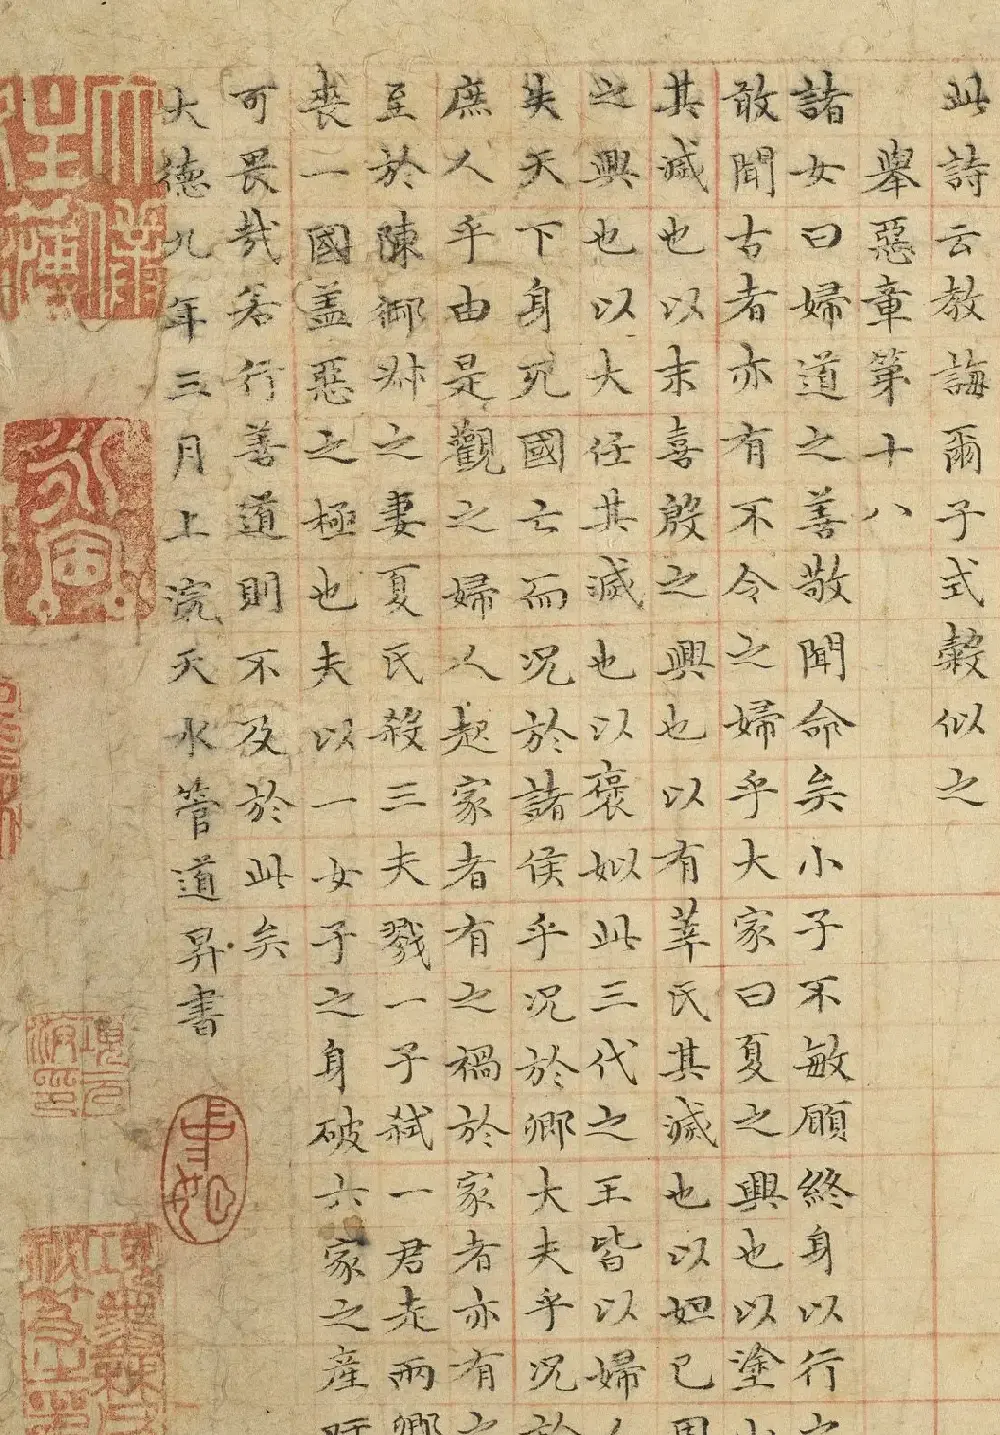 此詩云教誨爾子式穀似之
舉惡章第十八
諸女曰婦道之善敬聞命矣小子不敏願終身以行之
敢聞古者亦有不令之婦乎大家曰夏之興也以塗山
其滅也以末喜殷之興也以有莘氏其滅也以妲己周
之興也以大任其滅也以褒姒此三代之王皆以婦人
失天下身死國亡而况於諸侯乎况於卿大夫乎况於
庶人乎由是觀之婦人起家者有之禍於家者亦有之
至於陳御叔之妻夏氏殺三夫戮一子弑一君走兩卿
喪一國盖惡之極也夫以一女子之身破六家之產
可畏哉若行善道則不及於此矣
大德九年三月上浣天水管道昇書